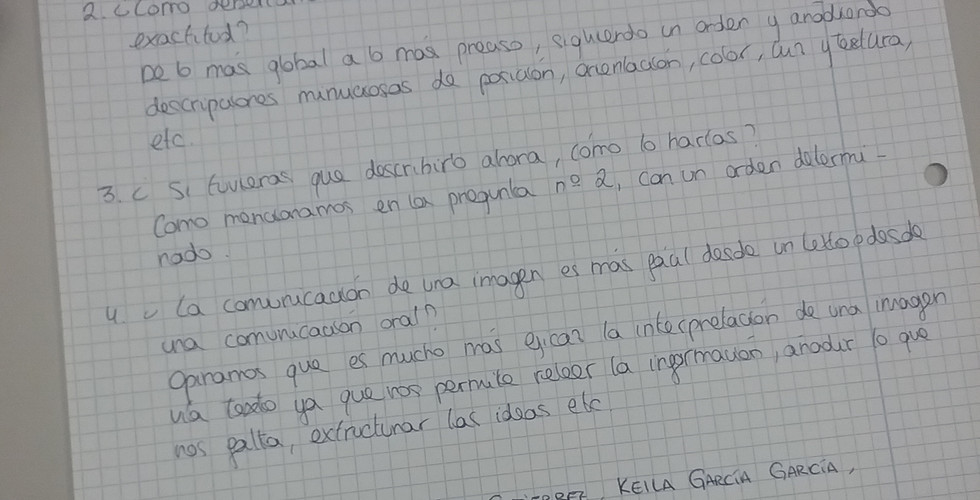 2. ¿Cómo
exactitud?
De lo más global a lo más preciso, siguiendo un orden y añadiendo
descripciones minuciosas de posición, orientación, color, luz y textura,
etc.
3. ¿ Si tuvieras que describirlo ahora, cómo lo harías?
Como mencionamos en la pregunta nº 2, con un orden determi-
nado.
4 ¿ La comunicación de una imagen es más fácil desde un texto o desde
una comunicación oral?
Opinamos que es mucho más eficaz la interpretación de una imagen
vía texto ya que nos permite releer la información, añadir lo que
nos falta, extructurar las ideas etc.
KEILA GARCÍA GARCÍA,